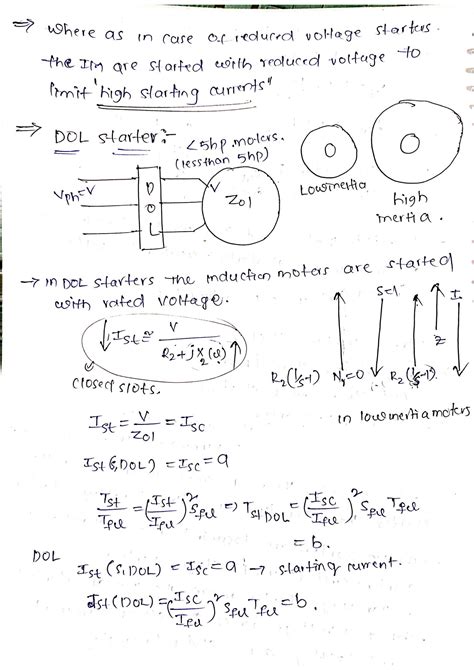 ⇒ where as in case of reduced voltage starters.
the IM are started with reduced voltage to
limit "high starting currents"
⇒ DOL starter:- <5hp motors.
(less than 5hp)
Vph=V
D
O
L
V
Z01
Low inertia
high
inertia.
→ In DOL starters the induction motors are started
with rated voltage.
↓ Ist ≅ V / R2+jX2(ω) ↑
closed slots.
S=1
I
Z
R2(1/s-1) N=0 R2(1/s-1)
in low inertia motors
Ist = V/Z01 = Isc
Ist(S,DOL) = Isc = a
Tst/Tful = (Ist/Iful)² Sful ⇒ Tst DOL = (Isc/Iful)² Sful Tful
= b.
DOL
Ist (S, DOL) = Isc = a → starting current.
Tst (DOL) = (Isc/Iful)² Sful Tful = b.